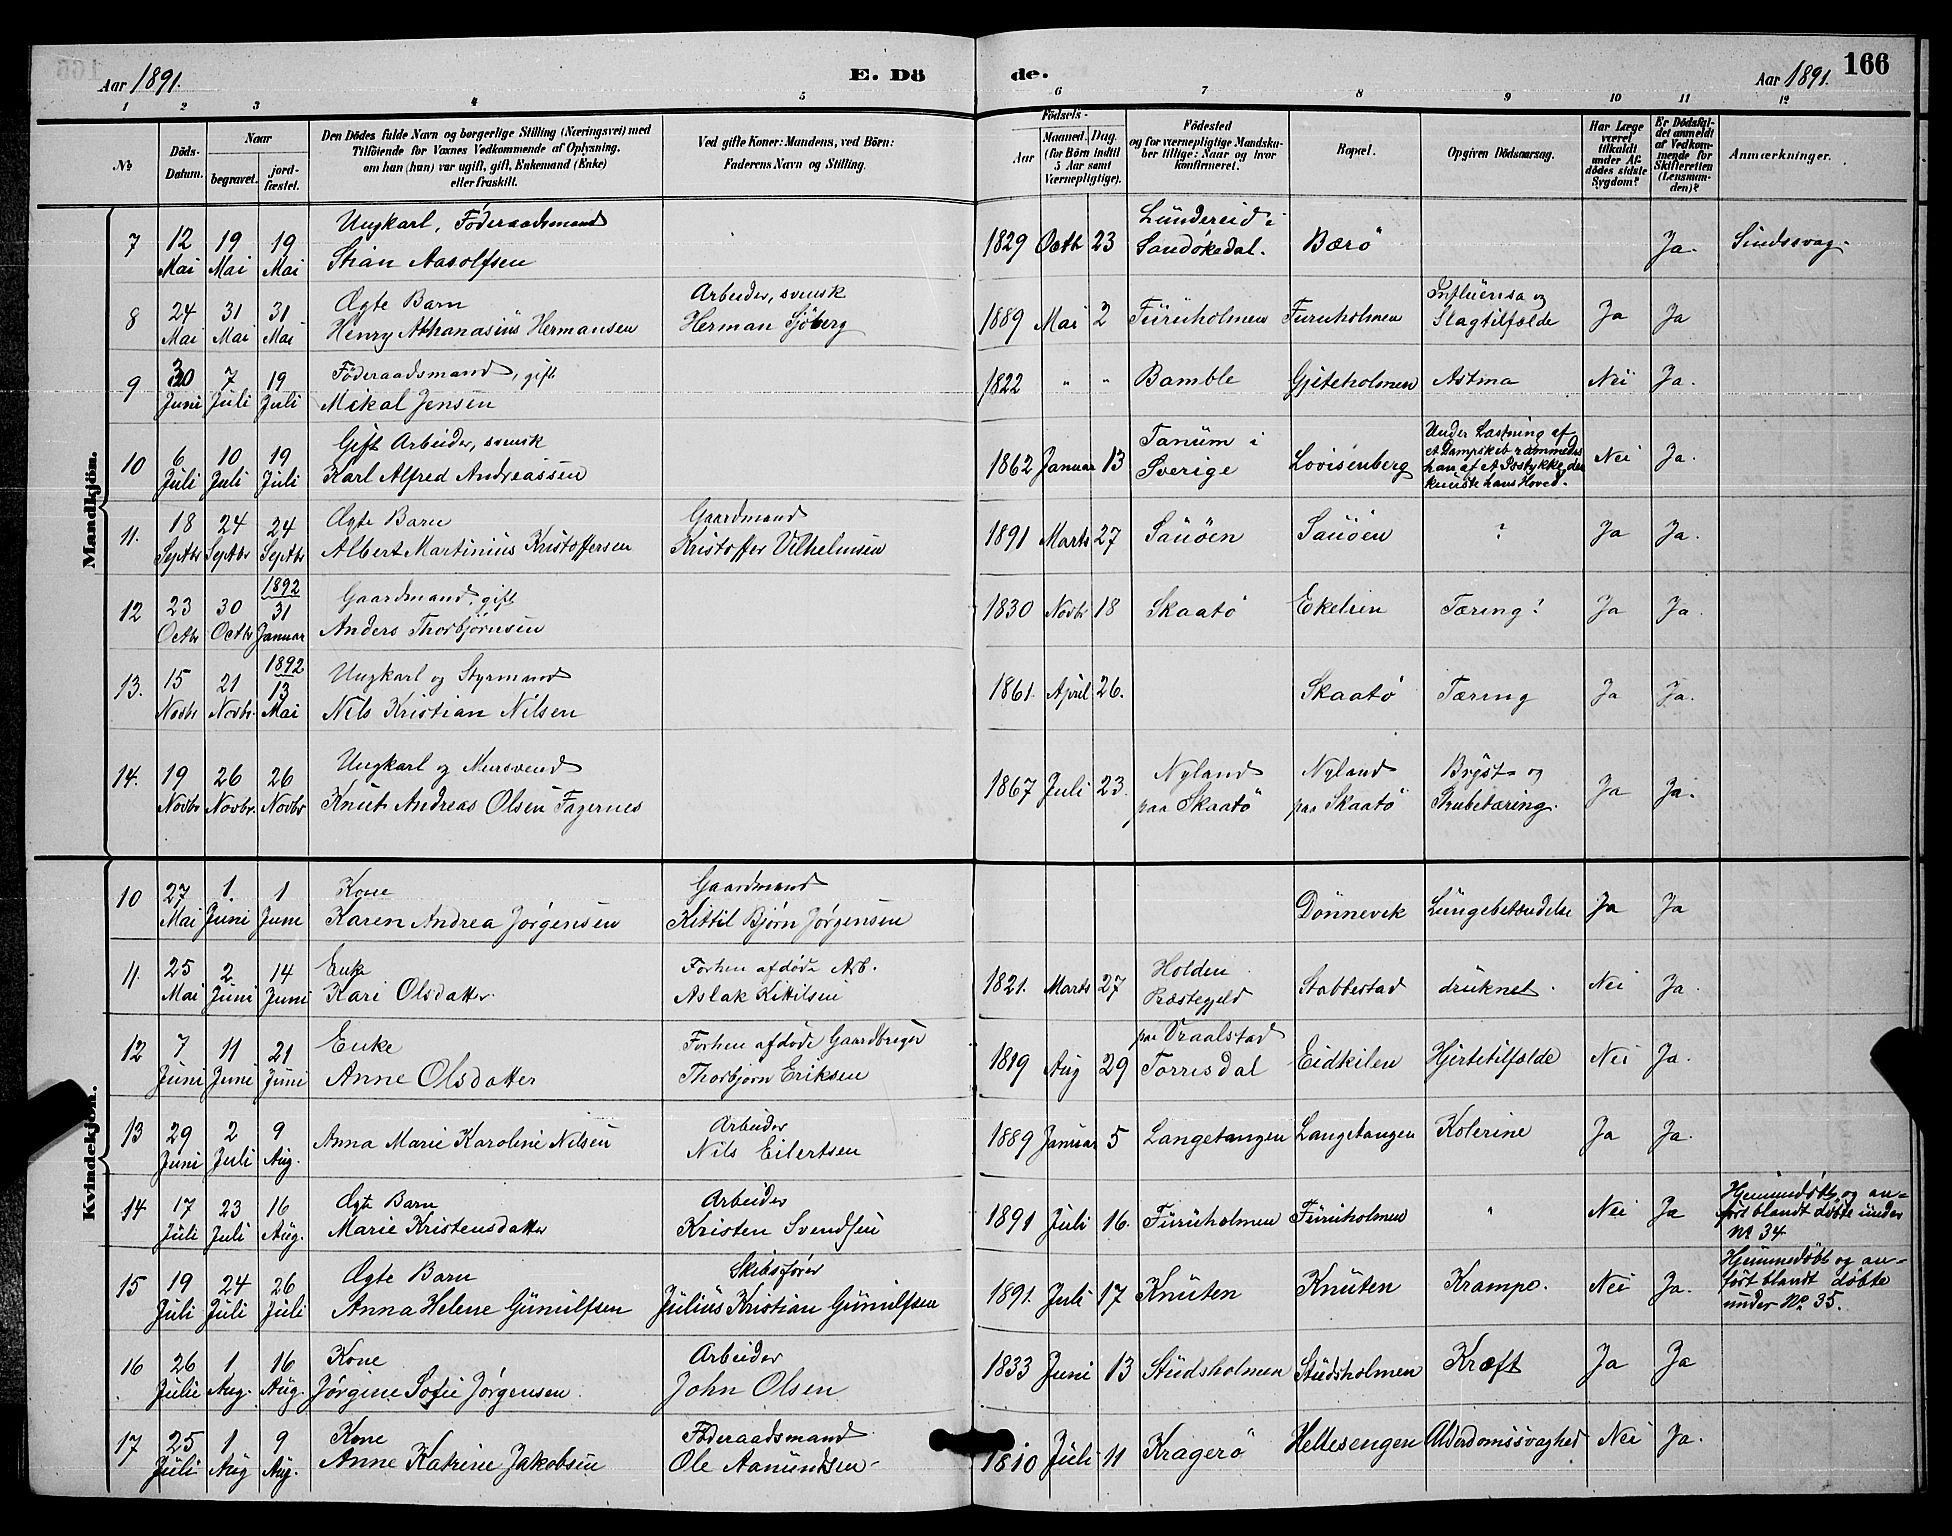 Aar 1891.
E. Dö
de.
Aar 1891.
166
1 2 3 4 5 6 7 8 9 10 11 12
№
Döds-Datum.
Naar
begravet.
jord-fæstet.
Den Dödes fulde Navn og borgerlige Stilling (Næringsvei) med
Tilföiende for Voxnes Vedkommende af Oplysning,
om han (hun) var ugift, gift, Enkemand (Enke)
eller fraskilt.
Ved gifte Koner: Mandens, ved Börn:
Faderens Navn og Stilling.
Födsels-
Aar
Maaned. Dag.
(for Börn indtil
5 Aar samt
Værnepligtige).
Födested
og for værnepligtige Mandska-
ber tillige: Naar og hvor
konfirmeret.
Bopæl.
Opgiven Dödsaarsag.
Har Læge
været
tilkaldt
under Af-
dödes sidste
Sygdom?
Er Dödsfal-
det anmeldt
af Vedkom-
mende for
Skifteretten
(Lensman-
den)?
Anmærkninger.
Mandkjön.
7 12 Mai 19 Mai 19 Mai Ungkarl, Föderaadsmand
Stian Aasolfsen 1829 Octb 23 Lundereid i
Sandökedal. Bærö Ja. Sindssvag.
8 24 Mai 31 Mai 31 Mai Ægte Barn
Henry Athanasius Hermansen Arbeider, svensk
Herman Sjöberg 1889 Mai 2 Furuholmen Furuholmen Influensa og
Slagtilfælde Ja Ja
9 30 Juni 7 Juli 19 Juli Föderaadsmand, gift
Mikal Jensen 1822 " " Bamble Gjiteholmen Astma Nei Ja.
10 6 Juli 10 Juli 19 Juli Gift Arbeider, svensk
Karl Alfred Andreassen 1862 Januar 13 Tanum i
Sverige Lovisenberg Under Lastning af
et Dampskib rammedes
han af et Isstykke, der
knuste hans Hoved. Nei Ja.
11. 18 Septbr 24 Septbr 24 Septbr Ægte Barn
Albert Martinius Kristoffersen Gaardmand
Kristoffer Vilhelmsen 1891 Marts 27 Sauöen Sauöen ? Ja Ja.
12 23 Octbr 30 Octbr 1892 31 Januar Gaardmand, gift
Anders Thorbjörnsen 1830 Novbr 18 Skaatö Ekelien Tæring? Ja Ja.
13. 15 Novbr 21 Novbr. 1892 13 Mai Ungkarl og Styrmand
Nils Kristian Nilsen 1861. April 26. Skaatö Tæring Ja Ja.
14. 19 Novbr 26 Novbr. 26 Novbr Ungkarl og Mursvend
Knut Andreas Olsen Fagernes 1867 Juli 23. Nyland
paa Skaatö Nyland
paa Skaatö Bryst- og
Strubetæring. Ja Ja.
Kvindekjön.
10 27 Mai 1. Juni 1 Juni Kone
Karen Andrea Jörgensen Gaardmand
Kittil Björn Jörgensen Dönnevik Lungebetændelse Ja Ja
11. 25 Mai 2 Juni 14 Juni Enke
Kari Olsdatter. Forhen afdöde Arb.
Aslak Kittilsen 1821. Marts 27 Holden
Præstegjeld Stabbestad druknet. Nei Ja.
12 7 Juni 11 Juni 21 Juni Enke
Anne Olsdatter Forhen afdöde Gaardbruger
Thorbjorn Eriksen 1819 Aug 29 paa Vraalstad
Torrisdal Eidkilen Hjertetilfælde Nei Ja.
13 29 Juni 2 Juli 9 Aug. Anna Marie Karoline Nilsen Arbeider
Nils Eilertsen 1889 Januar 5 Langetangen Langetangen Kolerine Ja Ja.
14 17 Juli 23 Juli 16 Aug. Ægte Barn
Marie Kristensdatter Arbeider
Kristen Svendsen 1891 Juli 16. Furuholmen Furuholmen " Nei Ja Hjemmedöbt og an-
fört blandt döbte under
No 34
15 19 Juli 24 Juli 26 Juli Ægte Barn
Anna Helene Gunulfsen Skibsförer
Julius Kristian Gunulfsen 1891. Juli 17 Knuten Knuten Krampe. Nei Ja. Hjemmedöbt og an-
fört blandt döbte
under No. 35.
16 26 Juli 1 Aug. 16 Aug. Kone
Jörgine Sofie Jörgensen. Arbeider
John Olsen 1833 Juni 13 Studsholmen Studsholmen Kræft Ja Ja
17 25 Juli 1 Aug 9 Aug. Kone
Anne Katrine Jakobsen Föderaadsmand
Ole Aanundsen 1810 Juli 11 Kragerö Hellesengen Alderdomssvaghed Nei Ja.